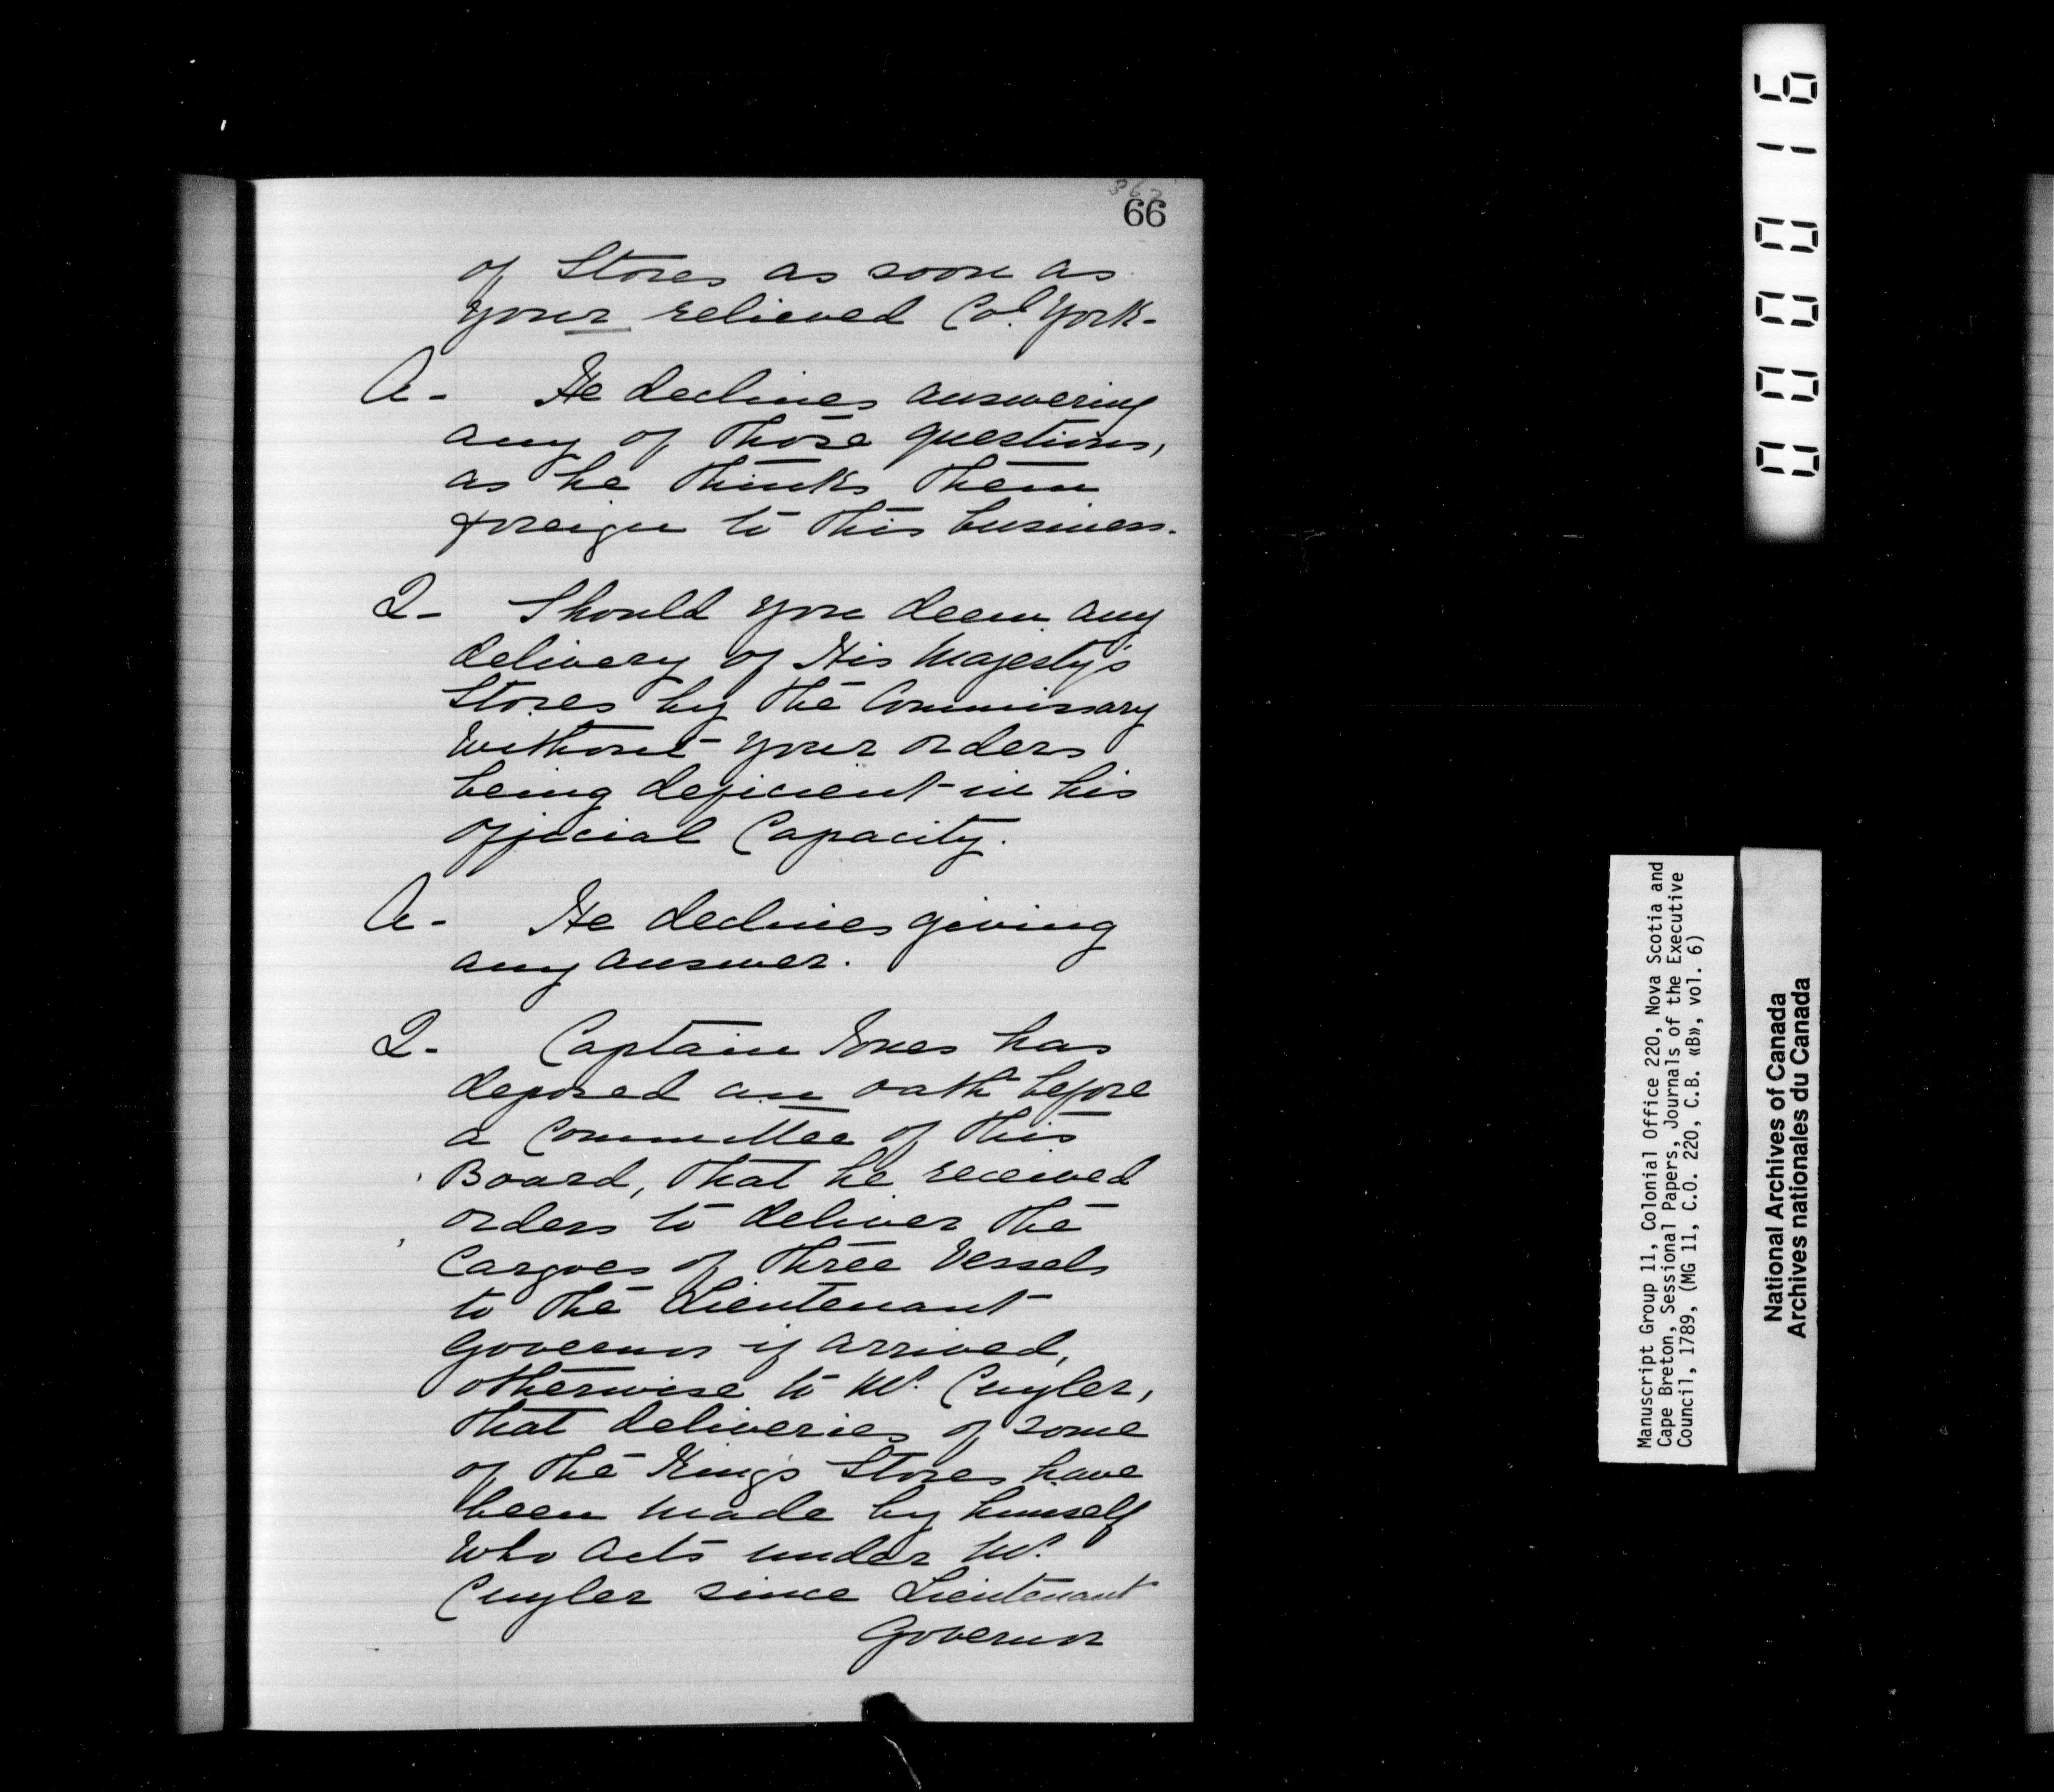 362
66
of Stores as soon as
your relieved Col. York.
A - He declines answering
any of those questions,
as he thinks them
foreign to this business.
Q - Should you deem any
delivery of His Majesty's
Stores by the Commissary
without your orders
being deficient in his
official Capacity.
A - He declines giving
any answer.
Q - Captain Jones has
deposed on oath before
a Committee of this
Board, that he received
orders to deliver the
Cargoes of three Vessels
to the Lieutenant
Governor if arrived,
otherwise to Mr. Cuyler,
that deliveries of some
of the King's Stores have
been made by himself
who acts under Mr.
Cuyler since Lieutenant
Governor
000016
Manuscript Group 11, Colonial Office 220, Nova Scotia and
Cape Breton, Sessional Papers, Journals of the Executive
Council, 1789, (MG 11, C.O. 220, C.B. «B», vol. 6)
National Archives of Canada
Archives nationales du Canada